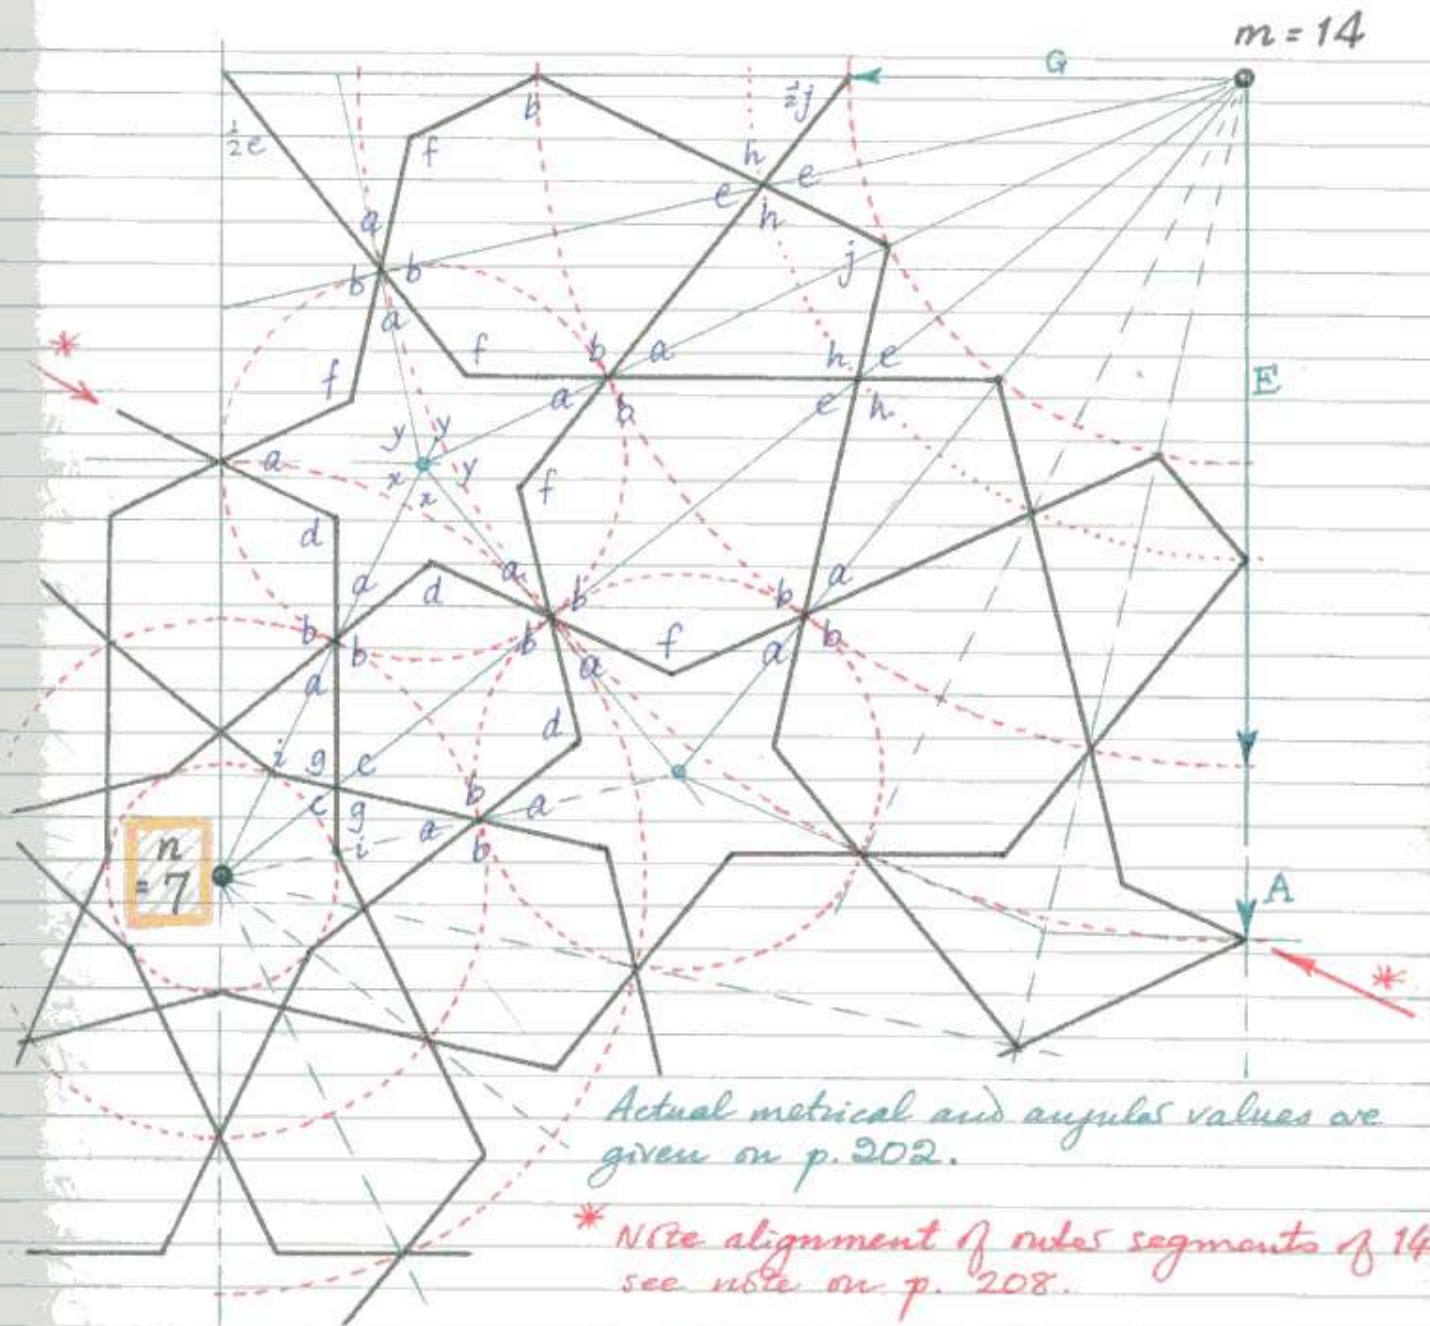 m = 14
G
½e
b
½j
f
h
e
e
a
h
b
b
j
a
f
b
a
h
e
f
a
b
e
h
E
y
y
a
x
x
y
f
d
a
a
a
d
b
b
b
b
b
f
a
b
a
a
a
d
i
g
c
b
a
c
g
a
i
b
n
= 7
A
Actual metrical and angular values are
given on p. 202.
* Note alignment of outer segments of 14
see note on p. 208.